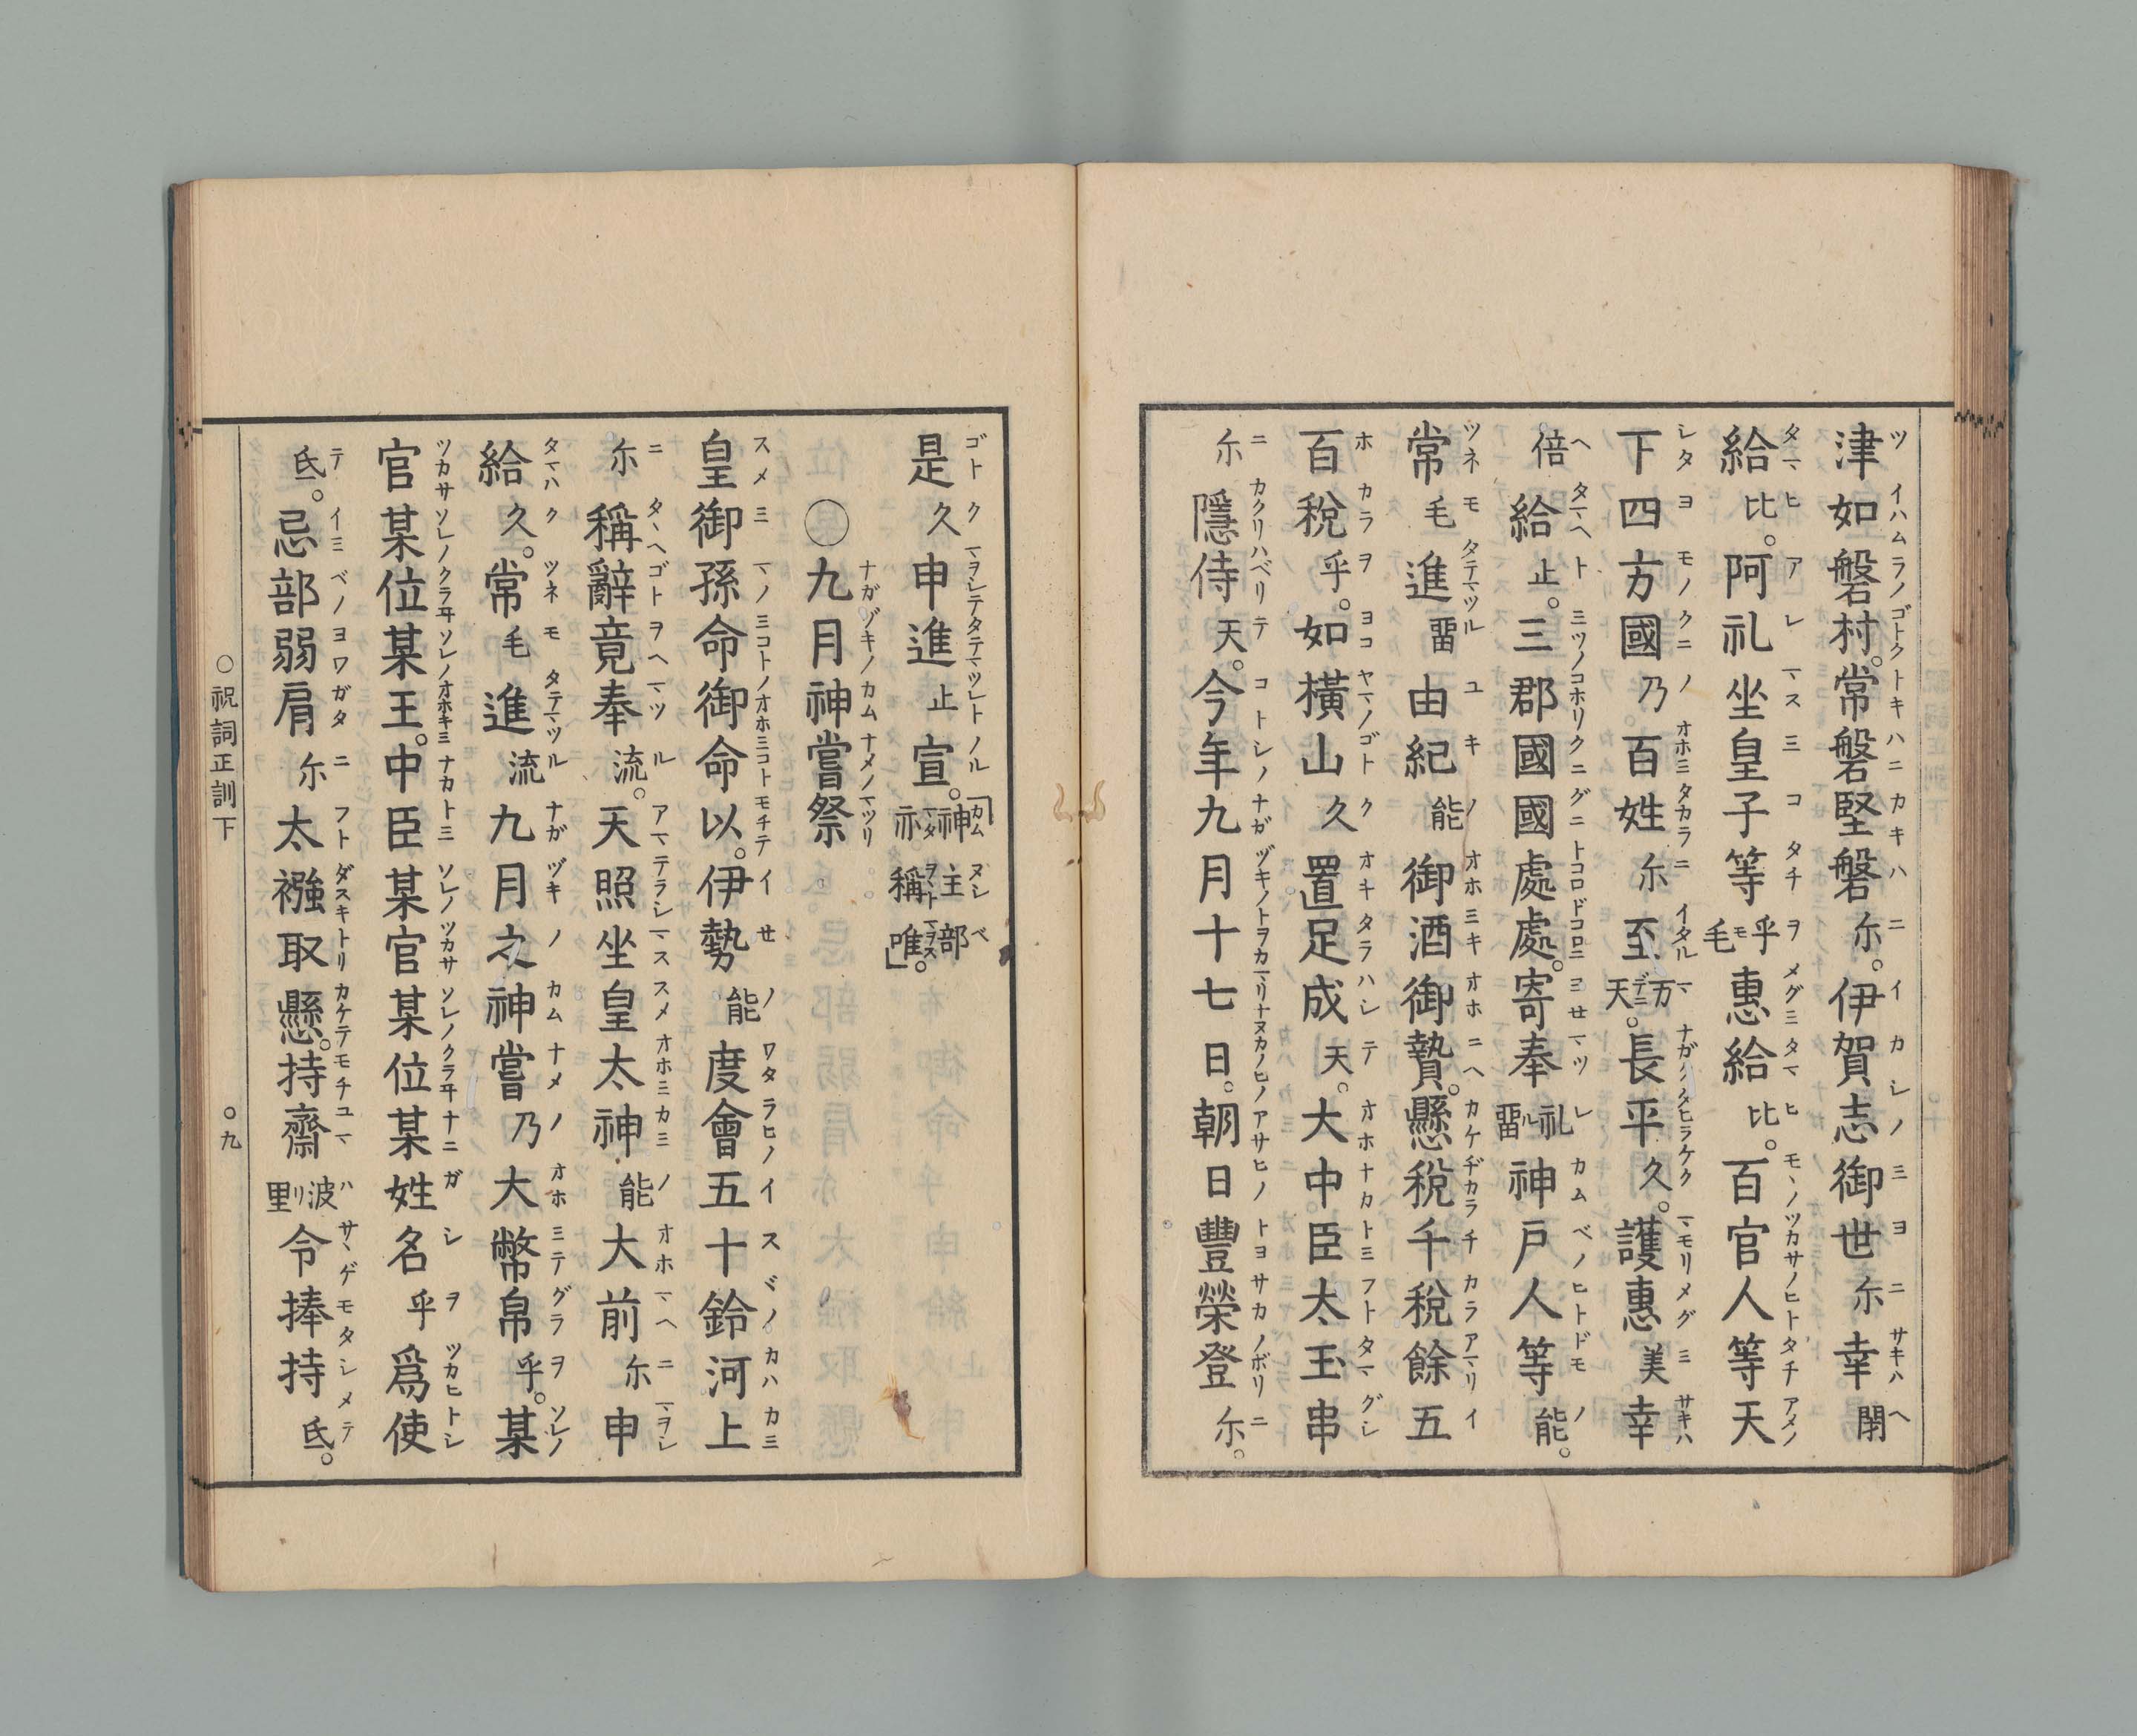 津如磐村。常磐堅磐尓。伊賀志御世尓幸閇
給比。阿礼坐皇子等乎毛惠給比。百官人等天
下四方國乃百姓尓至万天。長平久。護惠美幸
倍給止。三郡國國處處。寄奉礼留神戸人等能。
常毛進留由紀能御酒御贄。懸税千税餘五
百税乎。如横山久置足成天。大中臣太玉串
尓隱侍天。今年九月十七日。朝日豐榮登尓。
是久申進止宣。「神主部祢稱唯。」
○九月神嘗祭
皇御孫命御命以。伊勢能度會五十鈴河上
尓稱辭竟奉流。天照坐皇太神能大前尓申
給久。常毛進流九月之神嘗乃大幣帛乎。某
官某位某王。中臣某官某位某姓名乎爲使
氐。忌部弱肩尓太襁取懸。持齋波里令捧持氐。
○祝詞正訓下 ○九